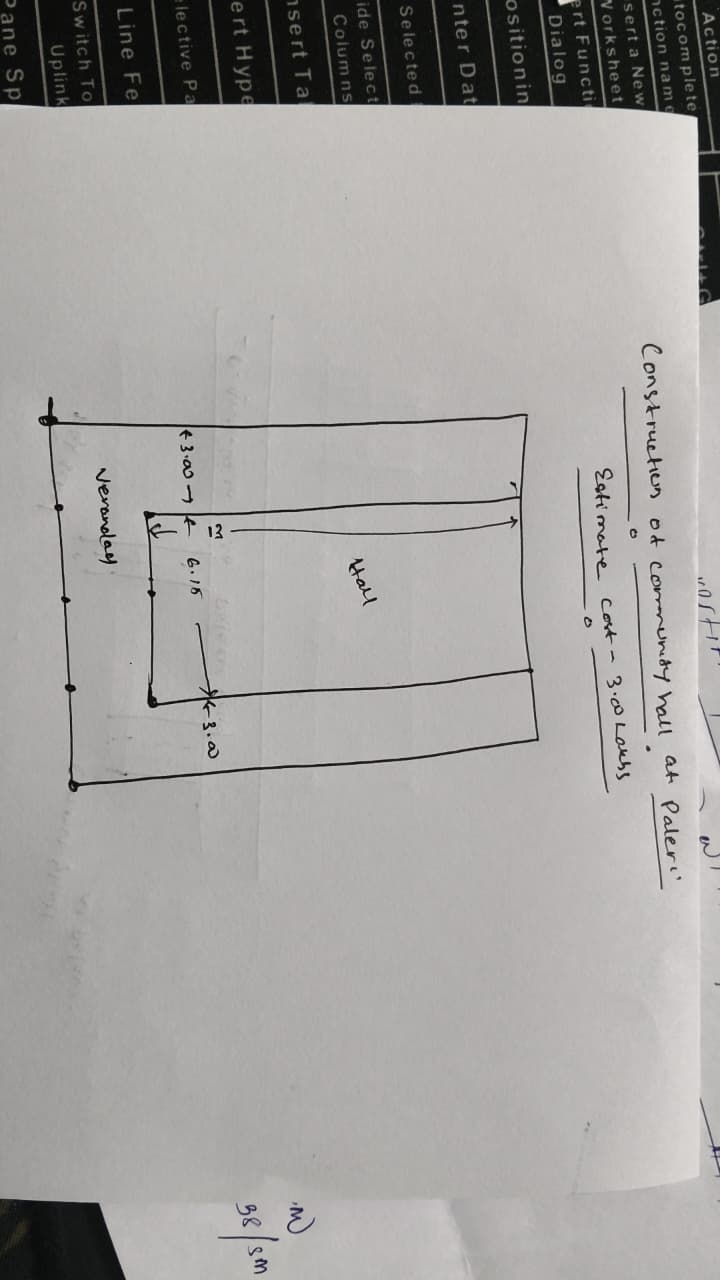 Action
tocomplete
nction name
sert a New
Worksheet
ert Functi
Dialog
ositionin
nter Dat
Selected
ide Select
Columns
nsert Ta
ert Hype
lective Pa
Line Fe
Switch To
Uplink
Pane Sp
Construction of community hall at Paleri
Estimate cost - 3.00 Lakhs
Hall
3.00
6.15
3.00
Veranday
98/sm